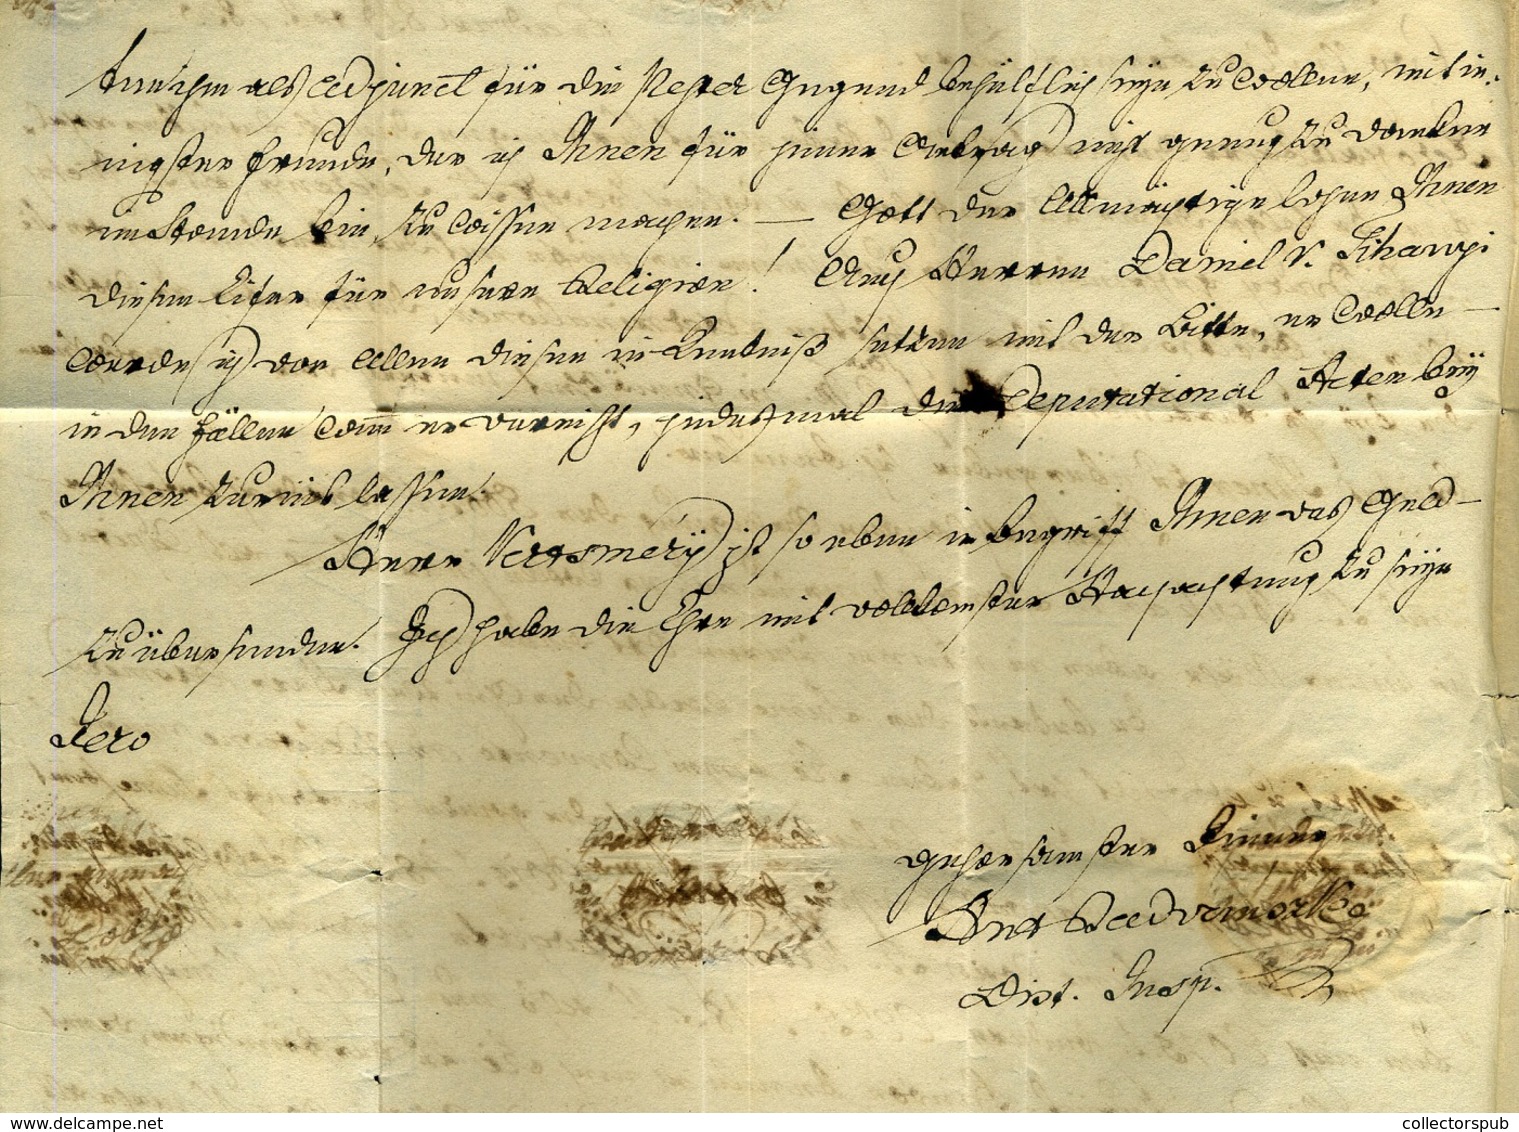 hm als Adjunct für die Pester Gegend behülflich seyn zu wollen, mit in-
nigster Freude, der ich Ihnen für jenen Antrag nicht genug zu danken
im Stande bin, zu wissen machen. — Gott der Allmächtige lohne Ihnen
diesen Eifer für unsere Religion! Auch Herrn Daniel v. Tihanyi
werde ich von Allem diesen in Kentniß setzen mit der Bitte, er wolle —
in den Fällen wann er verreist, jedesmal die Deputational Acten bey
Ihnen zurück lassen.
Herr Kerosmery ist so eben in begriff Ihnen das Geld —
zu übersenden. Ich habe die Ehre mit vollkomster Hochachtung zu seyn
Dero
gehorsamster Diener
Ant
Dist. Insp.
www.delcampe.net
collectorspub